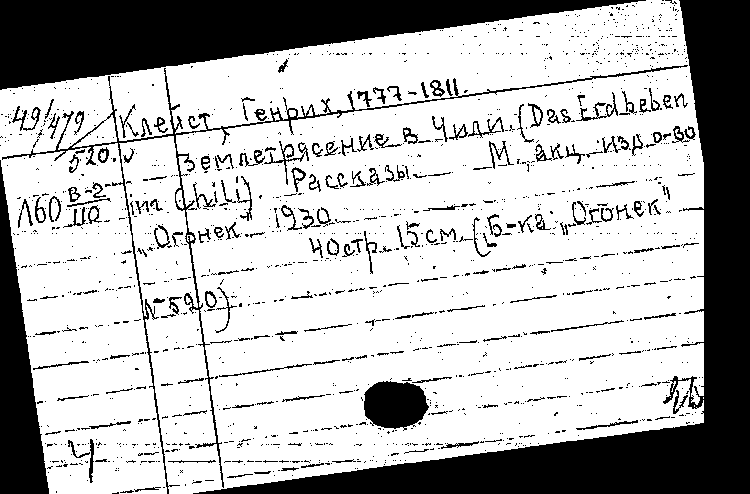 49/479
Клейст, Генрих, 1777-1811.
520.
Землетрясение в Чили. (Das Erdbeben
Л60 В-2/110 im Chili). Рассказы. М., акц. изд. о-во
„Огонек" 1930.
40 стр. 15 см. („Б-ка „Огонек"
№ 520).
4